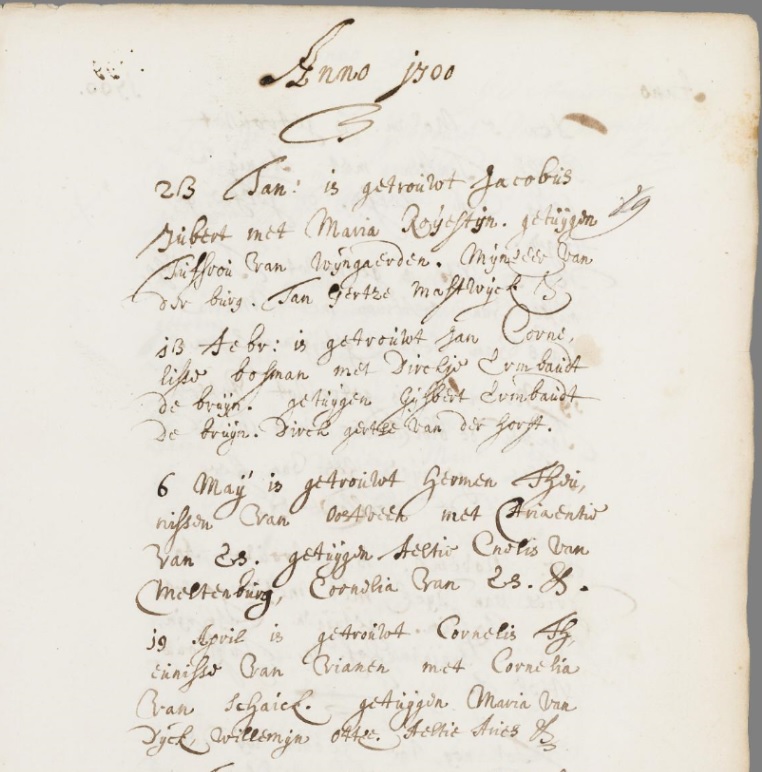 Anno 1700
23 Jan: is getrouwt Jacobus
Hubert met Maria Royestyn. getuygen
Juffrou van Wyngaerden. Mynheer van
der burg. Jan gertze mastwyck &
13 Febr: is getrouwt Jan Corne,
lisse bosman met Dirckje Ermbaudt
de bruyn. getuygen Gysbert Ermbaudt
de bruyn. Dirck gertze van der horst.
6 May is getrouwt Hermen Theu,
nissen van Oostveen met Ariaentie
van Es. getuygen Aeltie Cnelis van
Meltenburg, Cornelia van Es. &.
19 April is getrouwt Cornelis Th,
eunisse van Vianen met Cornelia
van Schaick. getuygen Maria van
Dyck, willemyn ottee. Aeltie Aries &